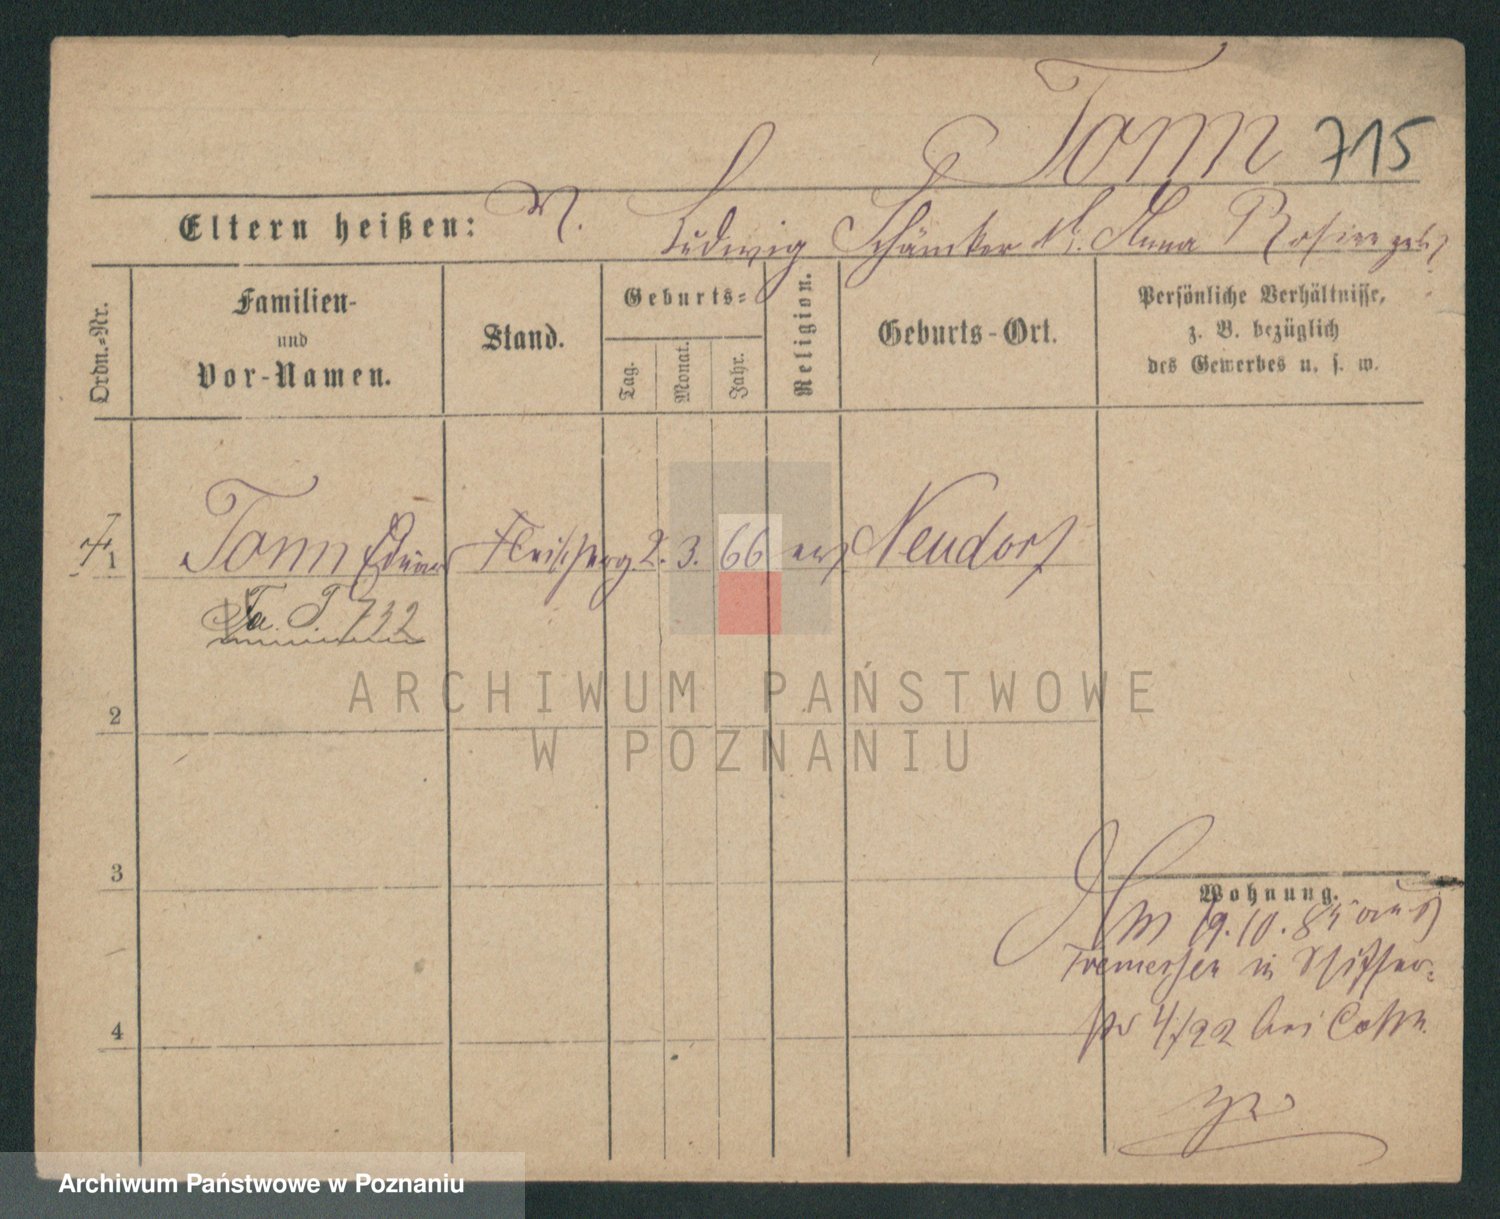 Tonn 715
Eltern heißen: V. Ludwig Schänker M. Anna Rosine geb
Ordn.-Nr.
Familien-
und
Vor-Namen.
Stand.
Geburts-
Tag.
Monat.
Jahr.
Religion.
Geburts-Ort.
Persönliche Verhältnisse,
z. B. bezüglich
des Gewerbes u. s. w.
1 Tonn Eduard Fleischerg. 2. 3. 66 ev Neudorf
Ta. T. 732
2
3
4
Wohnung.
Am 19.10.85 aus
Tremessen in
4/22 bei
ARCHIWUM PAŃSTWOWE
W POZNANIU
Archiwum Państwowe w Poznaniu